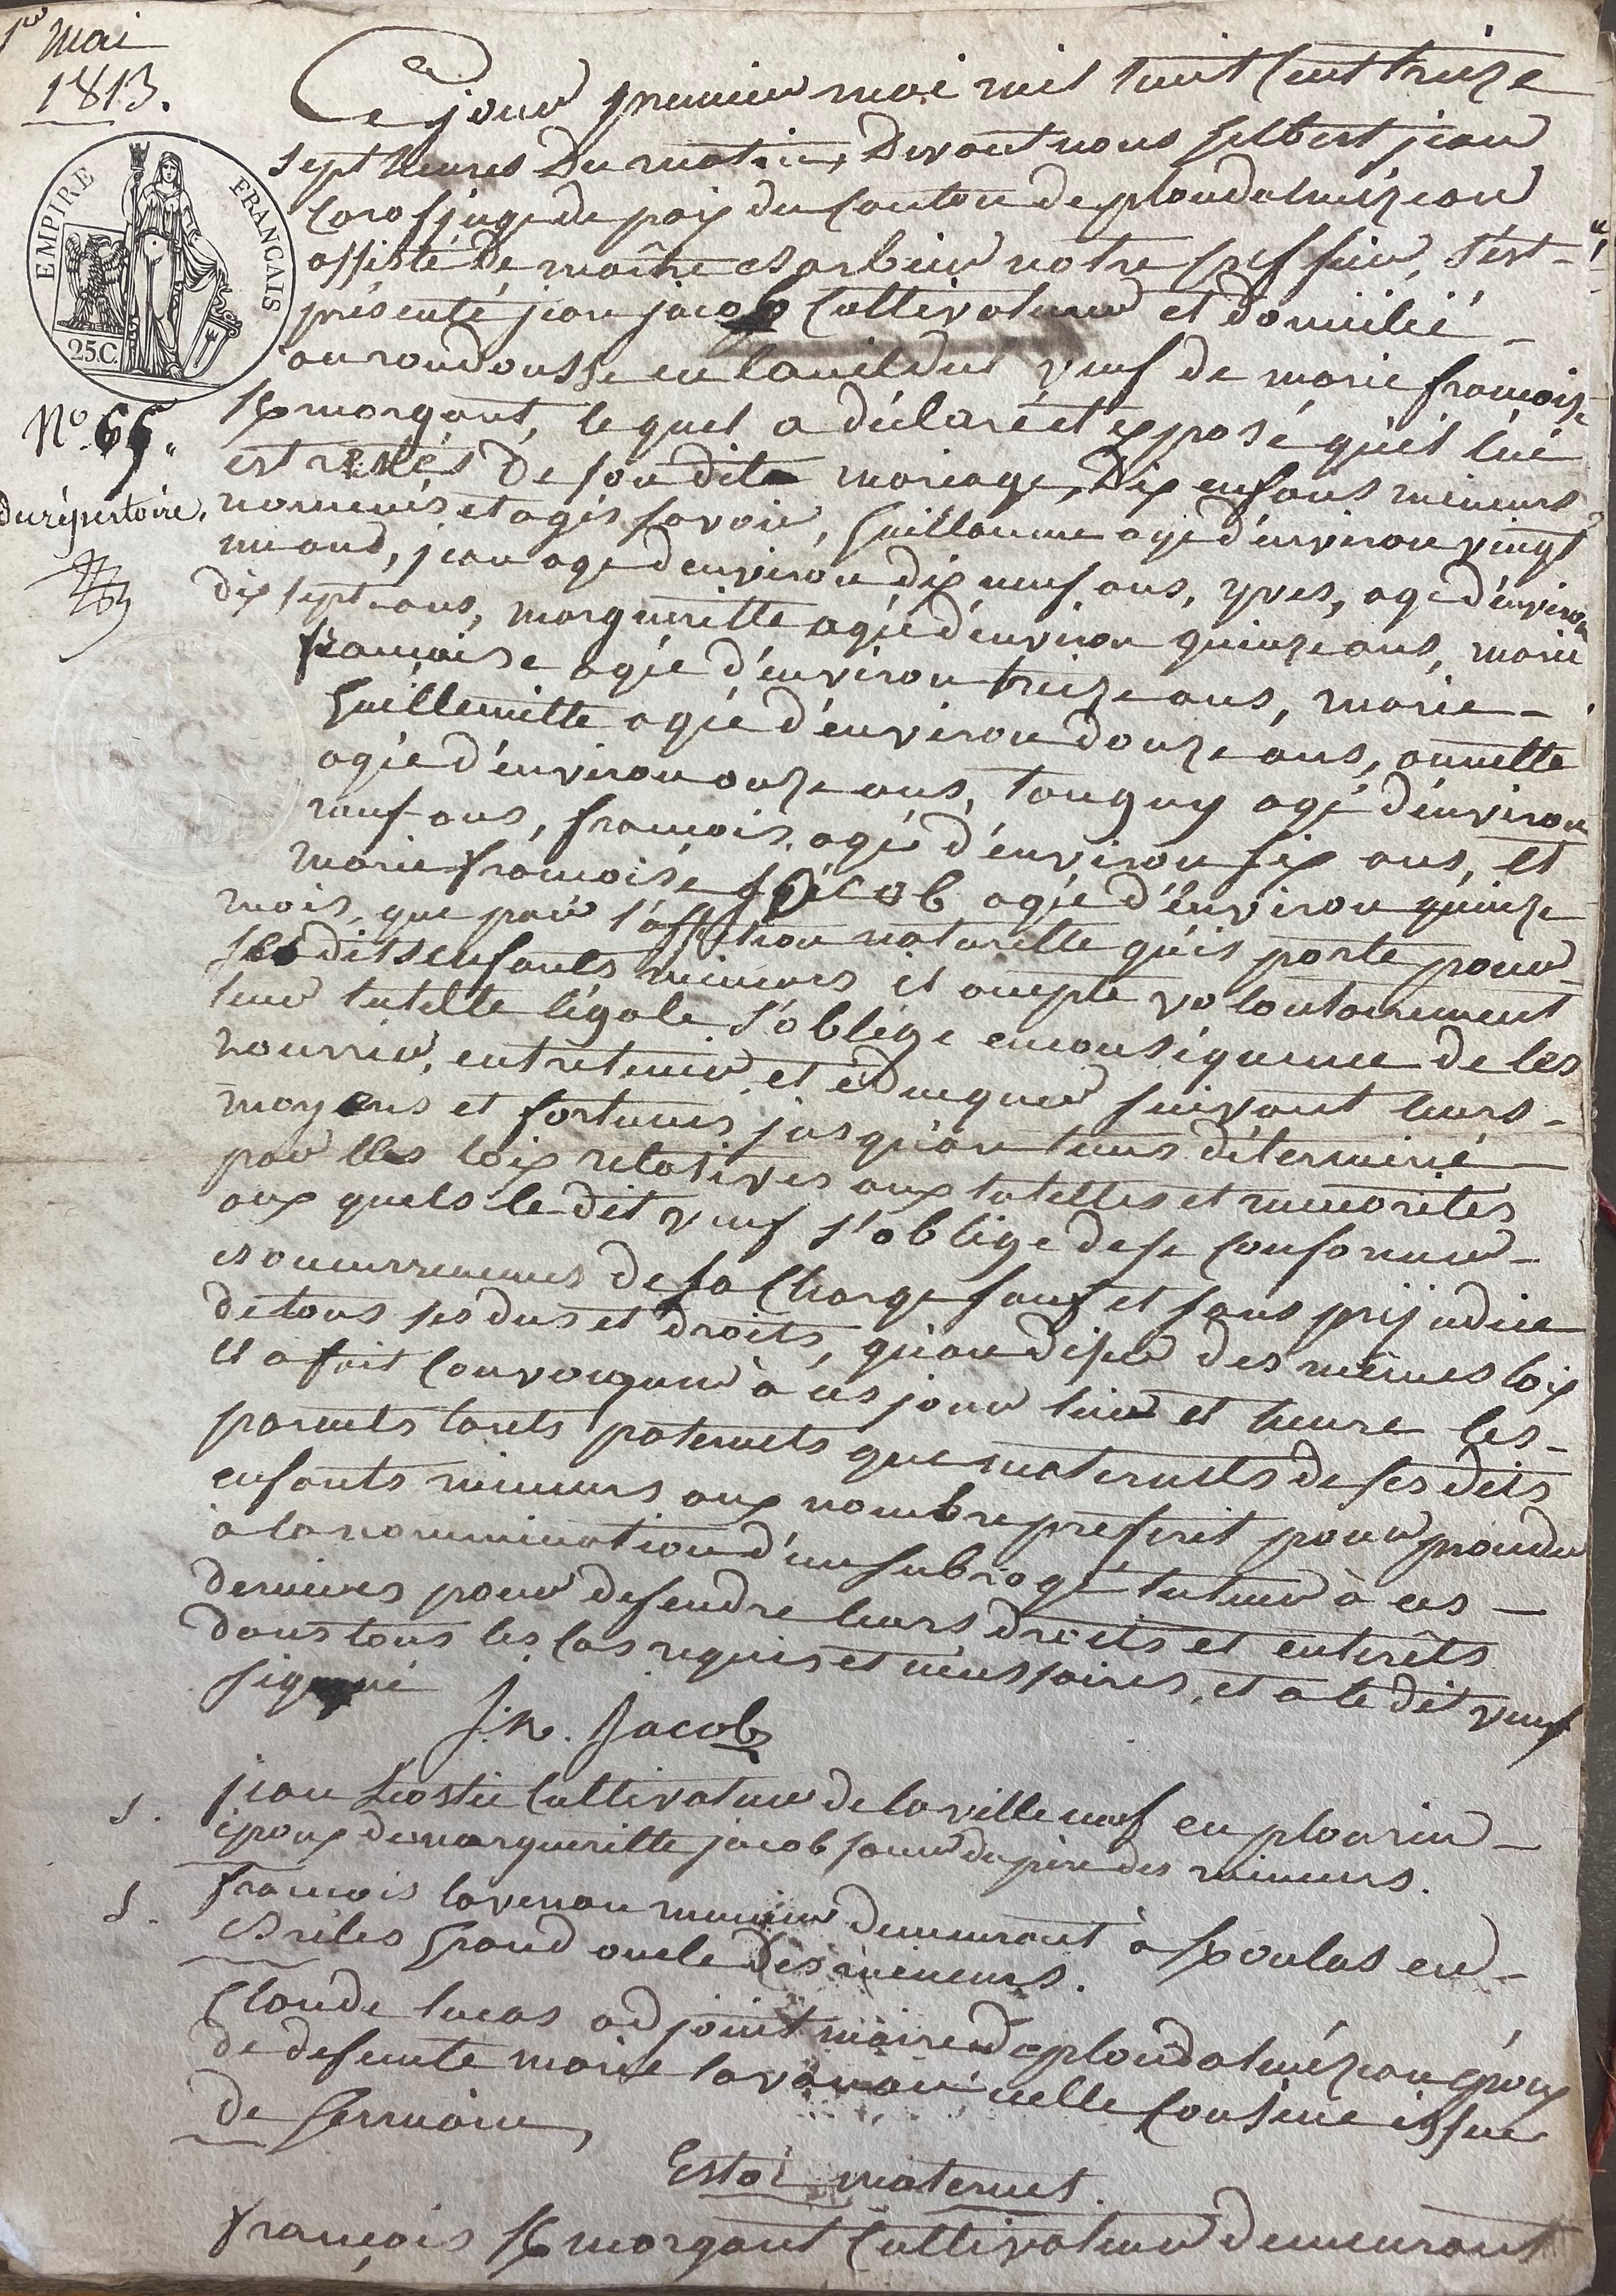 1er mai
1813.
EMPIRE FRANÇAIS
25C.
No. 65.
du répertoire.
Ce jour premier mai mil huit cent treize
sept heures du matin, Devant nous Gilbert jean
Corof juge de paix du Canton de ploudalmézeau
assisté De maître Barbier notre greffier, s'est-
présenté jean jacob Cultivateur et domicilié-
au roudousse en lanildut veuf de marie françoise
kmorgant, le quel a déclaré et exposé qu'il lui
est restés De son dit mariage, Dix enfans mineurs
nommés et agés savoir, Guillaume agé d'environ vingt
un ans, jean agé d'environ dix neuf ans, yves, agé d'environ
dix sept ans, margueritte agée d'environ quinze ans, marie
françoise agée d'environ treize ans, marie-
Guillemette agée d'environ douze ans, annette
agée d'environ onze ans, tanguy agé d'environ
neuf ans, françois, agé d'environ six ans, et
marie françoise jacob agée d'environ quinze
mois, que par l'affection naturelle qu'il porte pour
ses dits enfants mineurs il accepte volontairement
leur tutelle légale s'oblige enconséquence de les
nourrir, entretenir et éduquer suivant leurs-
moyens et fortunes jusqu'au tems déterminé-
par les loix relatives aux tutelles et minorités,
aux quels le dit veuf s'oblige de se conformer-
es occurrences de sa charge sauf et sans prejudice
de tous ses dus et droits, qu'au désir des mêmes loix
il a fait convoquer à ces jour lieu et heure les-
parents tants paternels que maternels de ses dits
enfants mineurs aux nombre préscrit pour procéder
à la nommination d'un subrogé tuteur à ces-
derniers pour defendre leurs droits et enterêts
dans tous les cas requis et nécessaires, et a le dit veuf
signé
J.n. Jacob
s. jean L'hostis Cultivateur de la ville neuf en plourin-
époux de margueritte jacob sœur du père des mineurs.
s. françois lavenan meunier demeurant à kpoulas en-
Brélès Grand oncle des mineurs.
Claude lucas adjoint maire de ploudalmézeau époux
de defunte marie lavanan icelle cousine issue
de Germain,
Estoc maternel.
françois kmorgant Cultivateur demeurant